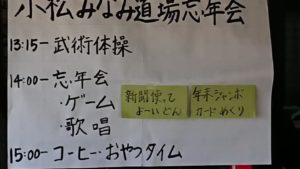 小松みなみ道場忘年会
13:15ー武術体操
14:00ー忘年会
・ゲーム
・歌唱
新聞使って
よーいどん
年末ジャンボ
カードめくり
15:00ーコーヒー・おやつタイム